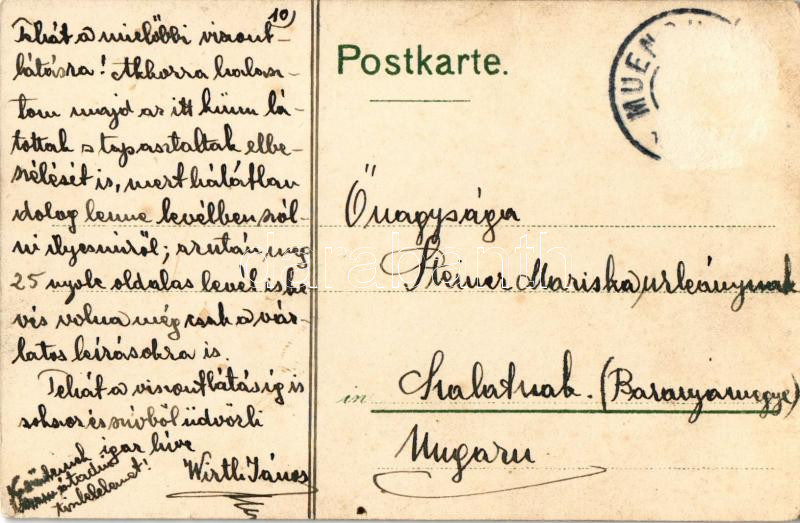 10)
Tehát a mielőbbi viszont-
látásra! Akkorra halasz-
tom majd az itt künn lá-
tottak s tapasztaltak elbe-
szélését is, mert hálátlan
dolog lenne levélben szól-
ni ilyesmiről; azután meg
25 nyolc oldalas levél is ke
vés volna még csak a váz-
latos leírásokra is.
Tehát a viszontlátásig is
sokszor és szívből üdvözli
igaz híve
Wirth János
Postkarte.
MUEN
Őnagysága
Steiner Mariska urleánynak
in Szalatnak. (Baranyamegye)
Ungarn
darabanth